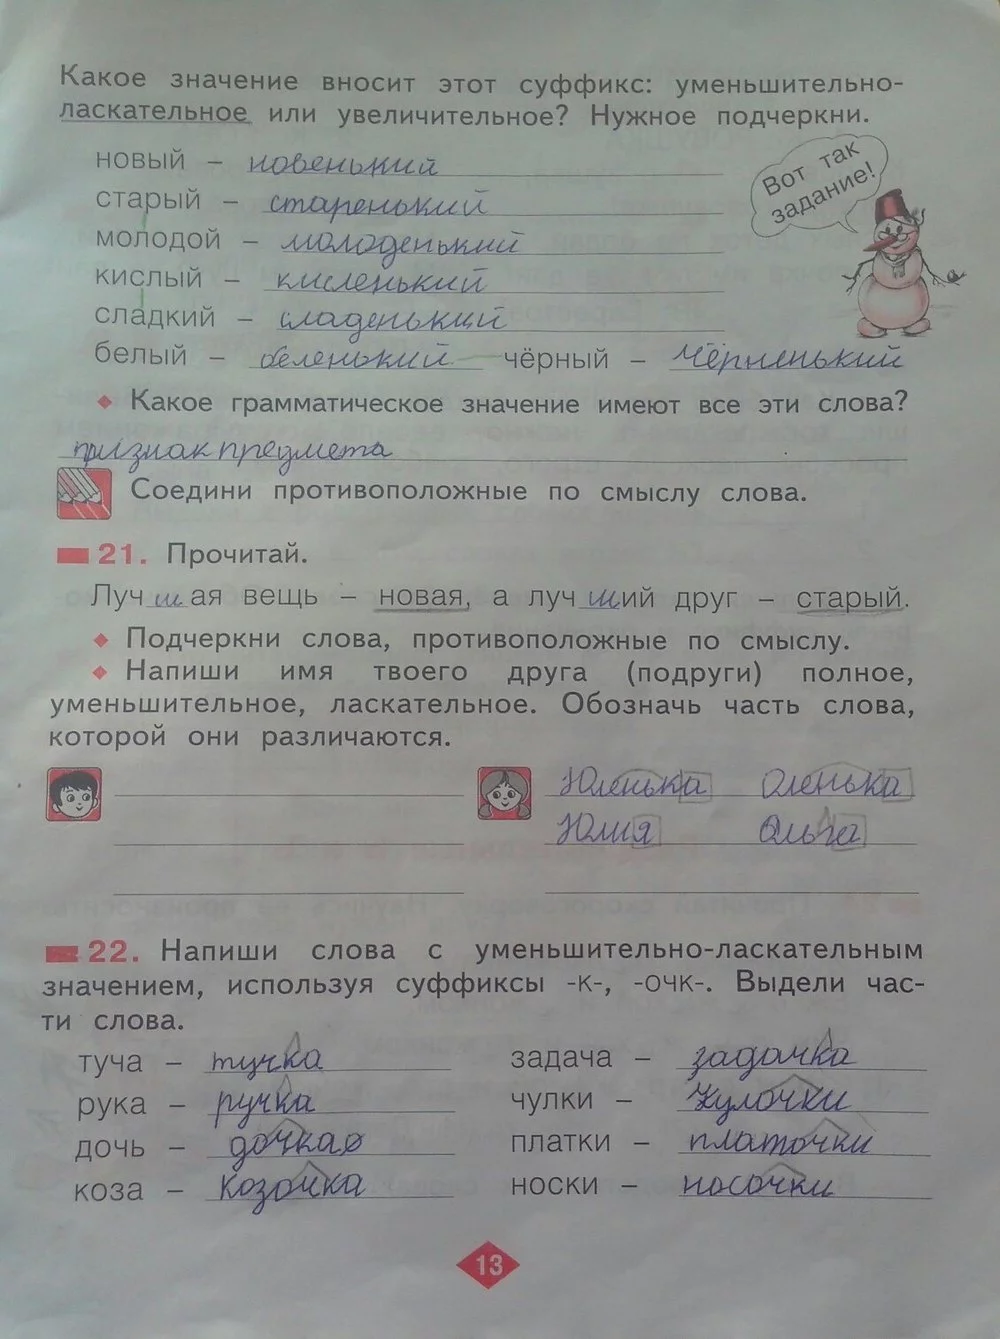 Какое значение вносит этот суффикс: уменьшительно-
ласкательное или увеличительное? Нужное подчеркни.
новый – новенький
Вот так
задание!
старый – старенький
молодой – молоденький
кислый – кисленький
сладкий – сладенький
белый – беленький чёрный – Чёрненький
Какое грамматическое значение имеют все эти слова?
признак предмета
Соедини противоположные по смыслу слова.
21. Прочитай.
Луч ш ая вещь – новая, а луч ш ий друг – старый.
Подчеркни слова, противоположные по смыслу.
Напиши имя твоего друга (подруги) полное,
уменьшительное, ласкательное. Обозначь часть слова,
которой они различаются.
Юленька Оленька
Юлия Ольга
22. Напиши слова с уменьшительно-ласкательным
значением, используя суффиксы -к-, -очк-. Выдели час-
ти слова.
туча – тучка задача – задачка
рука – ручка чулки – Чулочки
дочь – дочка платки – платочки
коза – козочка носки – носочки
13